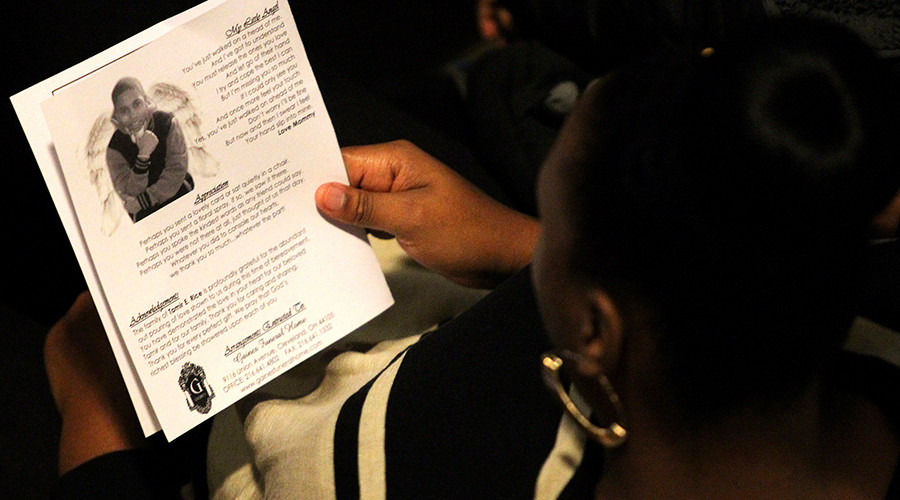 My Little Angel
You've just walked on a head of me.
And I've got to understand
You must release the ones you love
And let go of their hand
I try and cope the best I can
But I'm missing you so much
If I could only see you
And once more feel your touch
Yes, you've just walked on ahead of me
Don't worry I'll be fine
But now and then I swear I feel
Your hand slip into mine.
Love Mommy
Appreciation
Perhaps you sent a lovely card or sat quietly in a chair.
Perhaps you sent a floral spray, if so, we saw it there.
Perhaps you spoke the kindest words as any friend could say.
Perhaps you were not there at all, just thought of us that day.
Whatever you did to console our hearts,
we thank you so much...whatever the part!
Acknowledgement
The family of Tamir E. Rice is profoundly grateful for the abundant
out pouring of love shown to us during this time of bereavement.
You have demonstrated the love in your heart for our beloved
Tamir and for our family. Thank you for caring and sharing.
Thank you for every perfect gift. We pray that God's
richest blessing be showered upon each of you
Arrangements Entrusted To:
Gaines Funeral Home
9116 Union Avenue, Cleveland, OH 44105
OFFICE: 216.641.4802 FAX: 216.641.1332
www.gainesfuneralhome.com
G